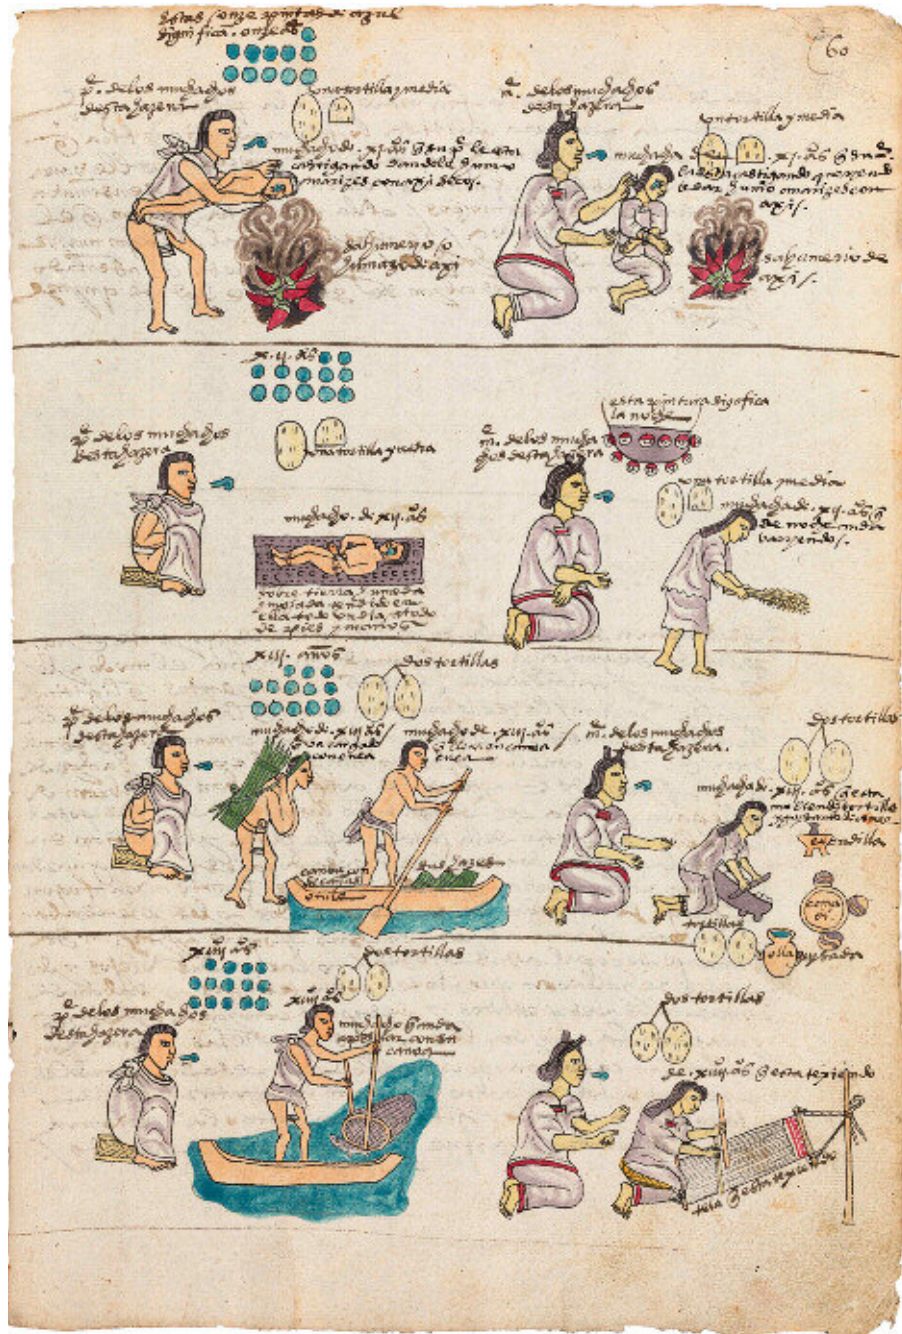 estas onze pintas de azul
significan onze años
60
p. de los muchachos
desta hazera
una tortilla y media
muchacho de .xi. años q su p. le esta
castigando dandole humo
a narizes con axi secos.
sahumerio o
humazo de axi
m. de los muchachos
desta hazera
una tortilla y media
muchacha de .xi. años q su m.
la esta castigando queriendo
le dar humo a narizes con
axi.
sahumerio de
axi.
x.ii. años
una tortilla y media
p. de los muchachos
desta hazera
muchacho. de xii. años
sobre tierra humeda
y mojada tendido en
ella todo un dia atado
de pies y manos
esta pintura significa
la noche
m. de los mucha
chos desta hazera
una tortilla y media
muchacha de .xii. años q
de noche anda
barriendo.
xiii. años
dos tortillas
p. de los muchachos
desta hazera
muchacho de xiii años
q va cargado
con enea
muchacho de .xiii. años
q lleva en canoa
enea
m. de los muchachos
desta hazera.
dos tortillas
muchacha de .xiii. años q esta
moliendo tortillas
escudilla
comal
tortillas
olla
xiiii años
dos tortillas
p. de los muchachos
desta hazera
xiiii años
muchacho q anda
a pescar con su
canoa
dos tortillas
de .xiiii. años q esta texiendo
tela q esta texiendo